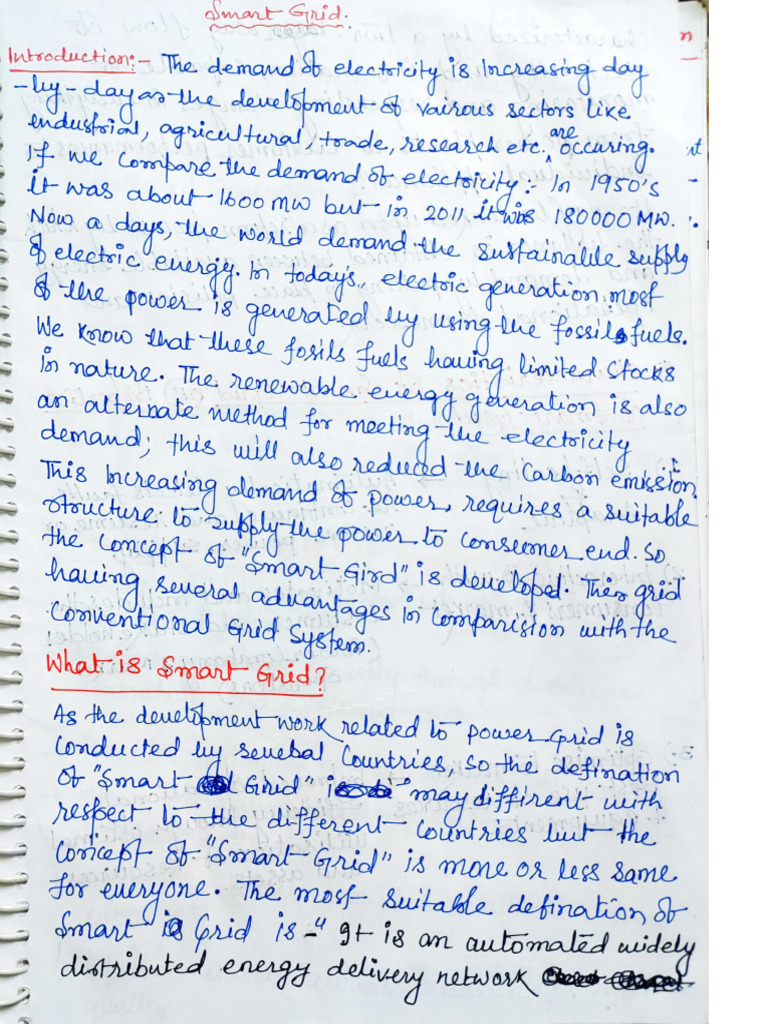 Smart Grid.
Introduction:- The demand of electricity is Increasing day
-by-day as the development of vairous sectors like
industrial, agricultural, trade, research etc. are occuring.
If we compare the demand of electricity:- In 1950's
it was about 1600 MW but in 2011 it was 180000 MW.
Now a days, the world demand the sustainable supply
of electric energy. In todays, electric generation most
of the power is generated by using the fossils fuels.
We know that these fosils fuels having limited stocks
in nature. The renewable energy generation is also
an alternate method for meeting the electricity
demand; this will also reduced the Carbon emission.
This Increasing demand of power, requires a suitable
structure to supply the power to consumer end. So
the concept of "Smart-Gird" is developed. This grid
having several advantages in comparision with the
conventional Grid System.
What is Smart Grid?
As the development work related to power Grid is
conducted by several Countries, so the defination
of "Smart Grid" may diffirent with
respect to the different countries but the
concept of "Smart-Grid" is more or less same
for everyone. The most suitable defination of
Smart Grid is - "It is an automated widely
distributed energy delivery network